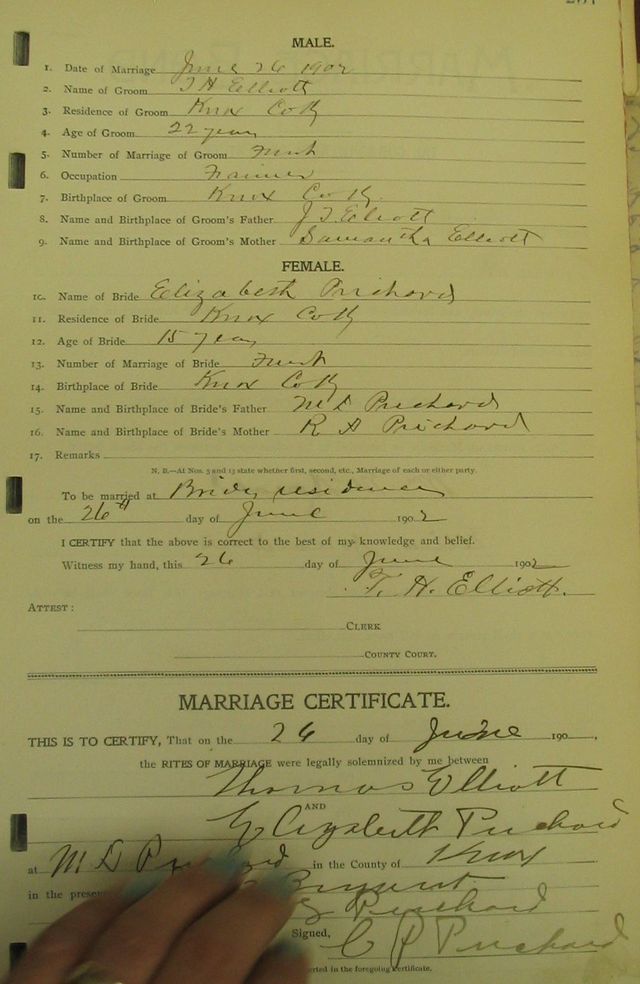 MALE.
1. Date of Marriage June 26 1902
2. Name of Groom T H Elliott
3. Residence of Groom Knox Co Ky
4. Age of Groom 22 years
5. Number of Marriage of Groom First
6. Occupation Farmer
7. Birthplace of Groom Knox Co Ky.
8. Name and Birthplace of Groom's Father J T Elliott
9. Name and Birthplace of Groom's Mother Samantha Elliott
FEMALE.
10. Name of Bride Elizabeth Prichard
11. Residence of Bride Knox Co Ky
12. Age of Bride 15 years
13. Number of Marriage of Bride First
14. Birthplace of Bride Knox Co Ky
15. Name and Birthplace of Bride's Father M L Prichard
16. Name and Birthplace of Bride's Mother R A Prichard
17. Remarks
N. B.—At Nos. 5 and 13 state whether first, second, etc., Marriage of each or either party.
To be married at Brides residence
on the 26th day of June 1902
I CERTIFY that the above is correct to the best of my knowledge and belief.
Witness my hand, this 26 day of June 1902
T. H. Elliott.
ATTEST:
CLERK
COUNTY COURT.
MARRIAGE CERTIFICATE.
THIS IS TO CERTIFY, That on the 26 day of June 190
the RITES OF MARRIAGE were legally solemnized by me between
Thomas Elliott
AND
Elizabeth Prichard
at M L Prichard in the County of Knox
in the Bryant
Prichard
Signed, C P Prichard
in the foregoing Certificate.